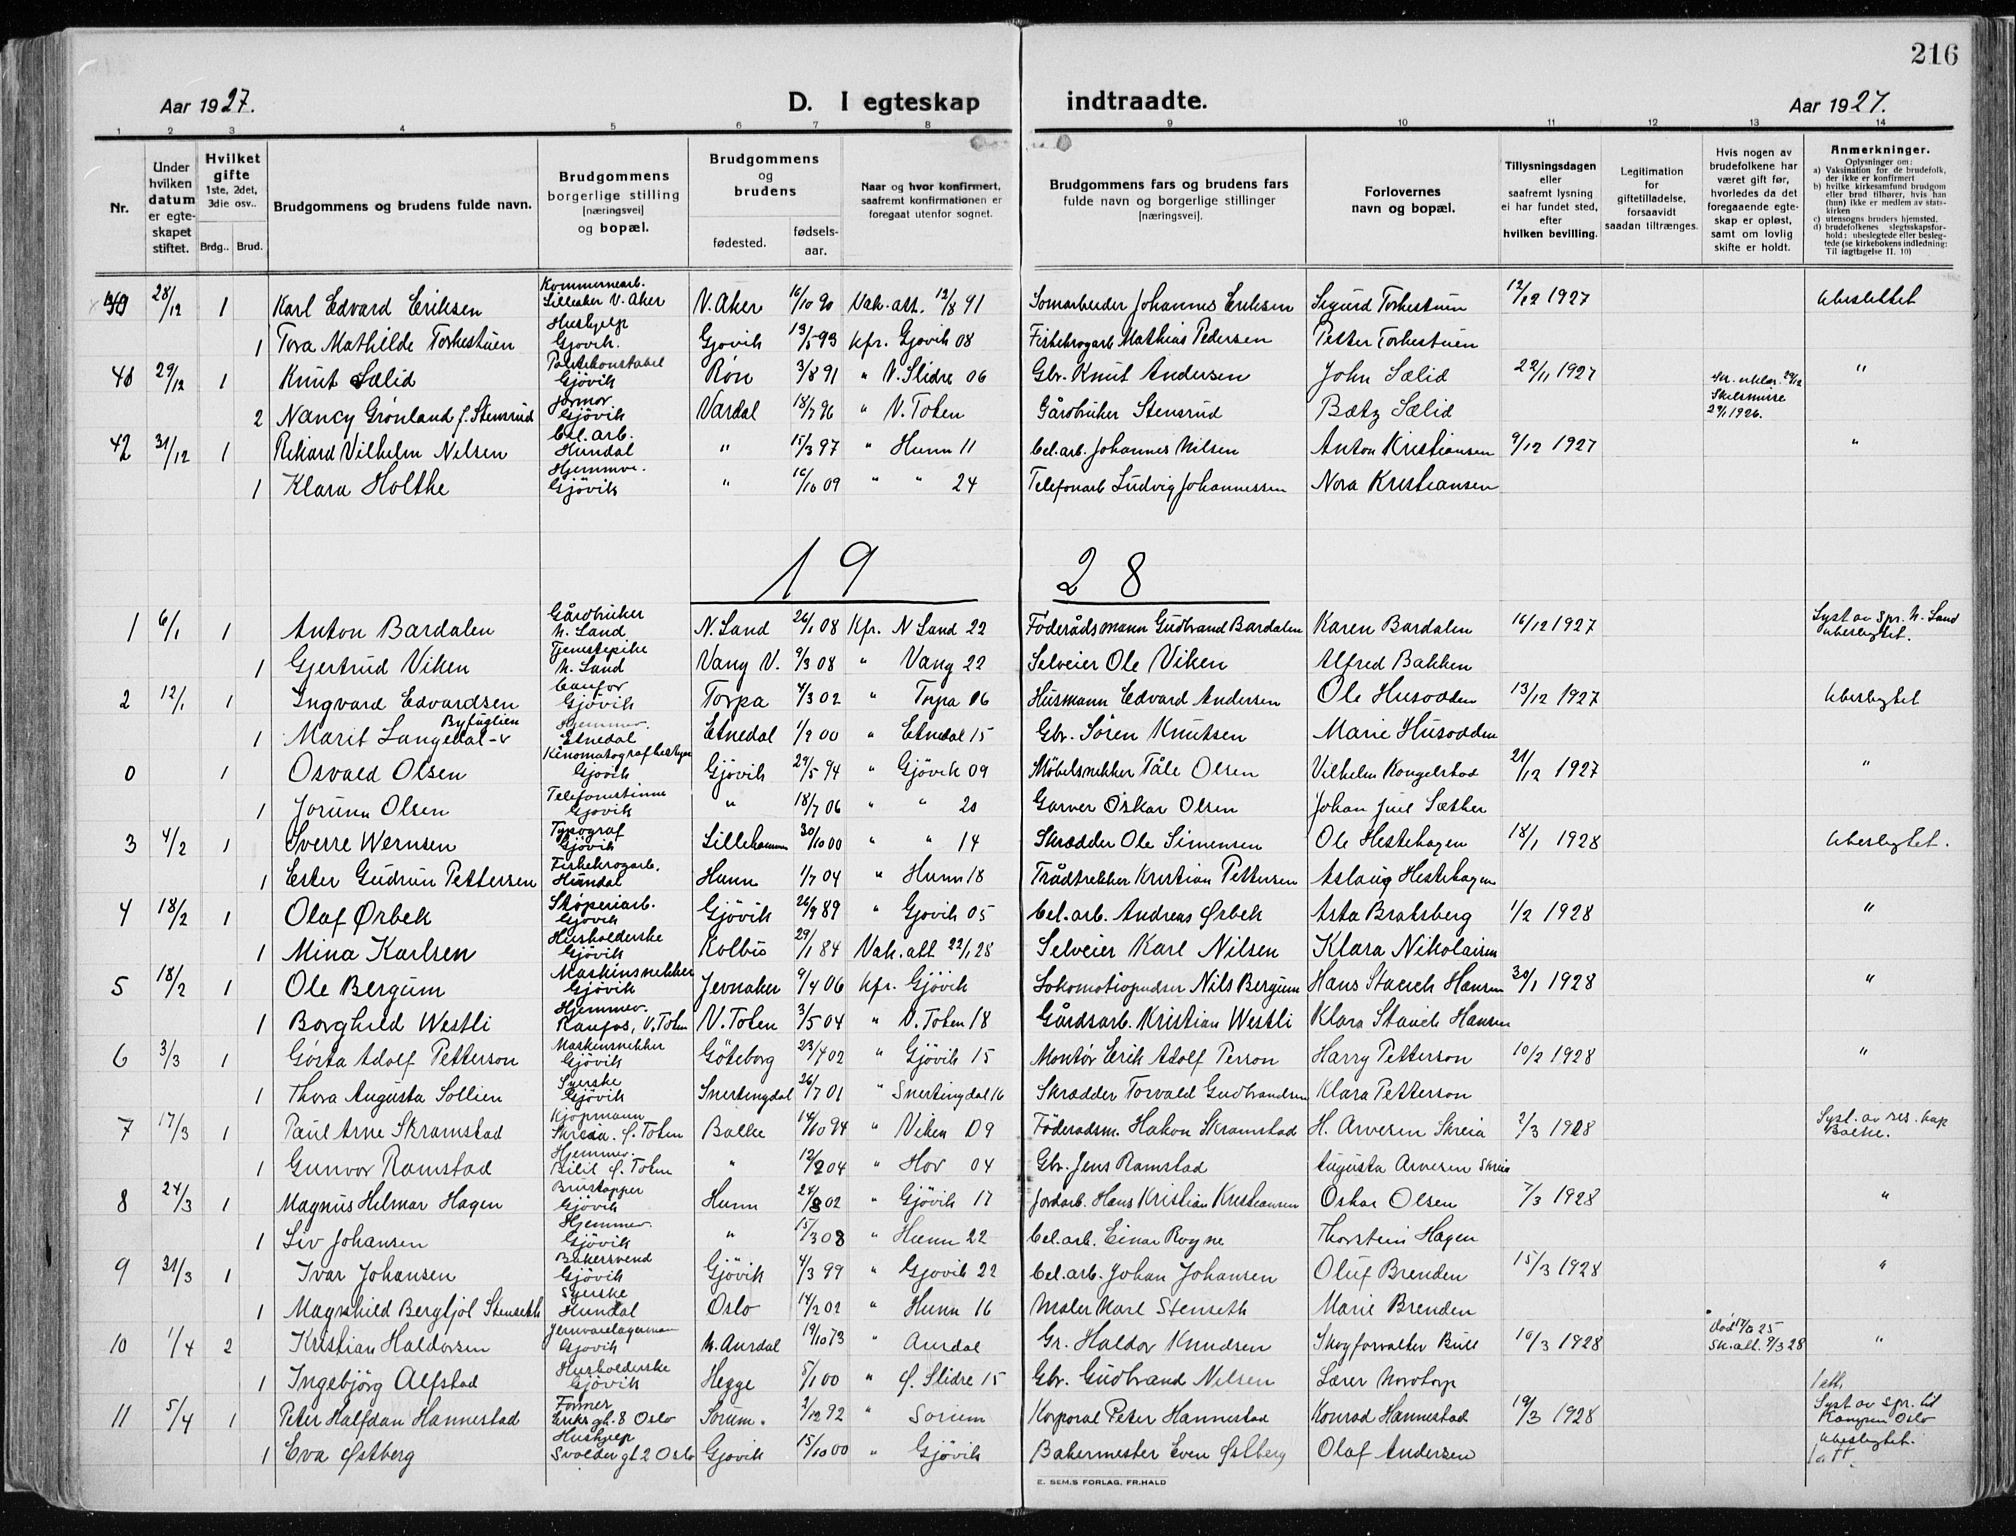 216
Aar 1927.
D. I egteskap indtraadte.
Aar 1927.
1 2 3 4 5 6 7 8 9 10 11 12 13 14
Nr.
Under hvilken datum er egte-skapet stiftet.
Hvilket gifte 1ste, 2det, 3die osv..
Brdg.. Brud.
Brudgommens og brudens fulde navn.
Brudgommens borgerlige stilling [næringsvei] og bopæl.
Brudgommens og brudens
fødested.
fødsels-aar.
Naar og hvor konfirmert, saafremt konfirmationen er foregaat utenfor sognet.
Brudgommens fars og brudens fars fulde navn og borgerlige stillinger [næringsvei].
Forlovernes navn og bopæl.
Tillysningsdagen eller saafremt lysning ei har fundet sted, efter hvilken bevilling.
Legitimation for giftetilladelse, forsaavidt saadan tiltrænges.
Hvis nogen av brudefolkene har været gift før, hvorledes da det foregaaende egte-skap er opløst, samt om lovlig skifte er holdt.
Anmerkninger.
Oplysninger om:
a) Vaksination for de brudefolk, der ikke er konfirmert
b) hvilke kirkesamfund brudgom eller brud tilhører, hvis han (hun) ikke er medlem av stats-kirken
c) utensogns bruders hjemsted.
d) brudefolkenes slegtsskapsfor-hold: ubeslegtede eller besleg-tede (se kirkebokens indledning: Til iagttagelse II. 10)
28/12 1 Karl Edvard Eriksen Kommunearb. Lilleaker V. Aker V. Aker 16/10 90 Vak. att. 12/8 91 Johannes Eriksen Sigurd Torkestuen 12/12 1927
1 Tora Mathilde Torkestuen Hushjelp Gjøvik. Gjøvik 13/5 93 Kfr. Gjøvik 08 Fiskekrogarb Mathias Pedersen Petter Torkestuen
29/12 1 Knut Sælid Politikonstabel Gjøvik Røn 3/8 91 " V. Slidre 06 Gbr. Knut Andersen John Sælid 22/11 1927 "
2 Nancy Grønland f. Stensrud Jormor Gjøvik Vardal 18/7 96 " V. Toten Gårdbruker Stensrud Bætz Sælid Skilsmisse
42 31/12 1 Rikard Vilhelm Nilsen Cel. arb. Hundal " 15/3 97 " Hunn 11 Cel. arb. Johannes Nilsen Anton Kristiansen 9/12 1927 "
1 Klara Holthe Hjemmev. Gjøvik " 16/10 09 " " 24 Telefonarb Ludvig Johannessen Nora Kristiansen
1928
1 6/1 1 Anton Bardalen Gårdbruker N. Land N. Land 26/1 08 Kfr. N Land 22 Føderådsmann Gudbrand Bardalen Karen Bardalen 16/12 1927 Lyst av Spr. N. Land Ubeslegtet.
1 Gjertrud Viken Tjenestepike N. Land Vang V. 9/3 08 " Vang 22 Selveier Ole Viken Alfred Bakken
2 12/1 1 Ingvard Edvardsen Gjøvik Torpa 4/3 02 " Torpa 06 Husmann Edvard Andersen Ole Husodden 13/12 1927 Ubeslegtet
1 Marit Langedal-v Byfuglien Hjemmev. Etnedal Etnedal 1/9 00 " Etnedal 15 Gbr. Søren Knutsen Marie Husodden
0 1 Osvald Olsen Kinomatografbestyrer Gjøvik Gjøvik 29/5 94 " Gjøvik 09 Møbelsnekker Tåle Olsen Vilhelm Kongelstad 21/12 1927 "
1 Jorunn Olsen Telefonistinne Gjøvik " 18/7 06 " " 20 Garver Oskar Olsen Johan Juel Sæther
3 4/2 1 Sverre Wernsen Typograf Gjøvik Lillehammer 30/10 00 " " 14 Skrædder Ole Simensen Ole Hestehagen 18/1 1928 Ubeslegtet.
1 Ester Gudrun Pettersen Fiskekrogarb. Hundal Hunn 1/7 04 " Hunn 18 Trådtrekker Kristian Pettersen Aslaug Hestehagen
4 18/2 1 Olaf Ørbek Støperiarb. Gjøvik Gjøvik 26/9 89 " Gjøvik 05 Cel. arb. Andreas Ørbek Asta Bratsberg 1/2 1928 "
1 Mina Karlsen Husholderske Gjøvik Kolbu 29/1 84 Vak. att 22/1 28 Selveier Karl Nilsen Klara Nikolaisen
5 18/2 1 Ole Bergum Maskinsnekker Gjøvik Jevnaker 9/4 06 Kfr. Gjøvik Lokomotivpudser Nils Bergum Hans Stauch Hansen 30/1 1928 "
1 Borghild Westli Hjemmev. Raufos, V. Toten V. Toten 3/5 04 " V. Toten 18 Gårdsarb. Kristian Westli Klara Stauch Hansen
6 3/3 1 Gösta Adolf Petterson Maskinsnekker Gjøvik Göteborg 23/4 02 " Gjøvik 15 Montør Erik Adolf Person Harry Petterson 10/2 1928 "
1 Thora Augusta Sollien Syerske Gjøvik Snertingdal 26/7 01 " Snertingdal 16 Skrædder Torvald Gudbrandsen Klara Petterson
7 17/3 1 Paul Arne Skramstad Kjøpmann Skreia. Ø. Toten Balke 14/10 94 " Viken 09 Føderadsm. Hakon Skramstad H. Arvesen Skreia 2/3 1928 Lyst. av res. kap Balke.
1 Gunvor Ramstad Hjemmev. Bilit Ø. Toten " 12/2 04 " Hov 04 Gbr. Jens Ramstad Augusta Arvesen Skreia
8 24/3 1 Magnus Hilmar Hagen Brustapper Gjøvik Hunn 24/8 02 " Gjøvik 17 Jordarb. Hans Kristian Kristiansen Oskar Olsen 7/3 1928 "
1 Liv Johansen Hjemmev. Gjøvik " 15/3 08 " Hunn 22 Cel. arb. Einar Rogne Thorstein Hagen
9 31/3 1 Ivar Johansen Bakersvend Gjøvik Gjøvik 4/3 99 " Gjøvik 22 Cel. arb. Johan Johansen Oluf Brenden 15/3 1928 "
1 Magnhild Bergljot Stenseth Syerske Hundal Oslo 14/2 02 " Hunn 16 Maler Karl Stenseth Marie Brenden
10 1/4 2 Kristian Haldorsen Jernvarelagermann Gjøvik N. Aurdal 19/10 73 " Aurdal Gr. Haldor Knudsen Skogforvalter Bull 10/3 1928 Sk. att. 9/3 28 "
1 Ingebjørg Alfstad Husholderske Gjøvik Hegge 5/1 00 " Ø. Slidre 15 Gbr. Gudbrand Nilsen Lærer Nordtorp 1 att.
11 5/4 1 Peter Halfdan Hannestad Former Eriks gt. 8 Oslo Sorum. 2/12 92 " Sorum Korporal Peter Hannestad Konrad Hannestad 19/3 1928 Lyst av Spr. til Kampen Oslo
1 Eva Østberg Hushjelp Svolder gt 2 Oslo Gjøvik 15/10 00 " Gjøvik Bakermester Even Østberg Olaf Andersen Ubeslegtet. 1 att.
E. SEM.S FORLAG, FR.HALD